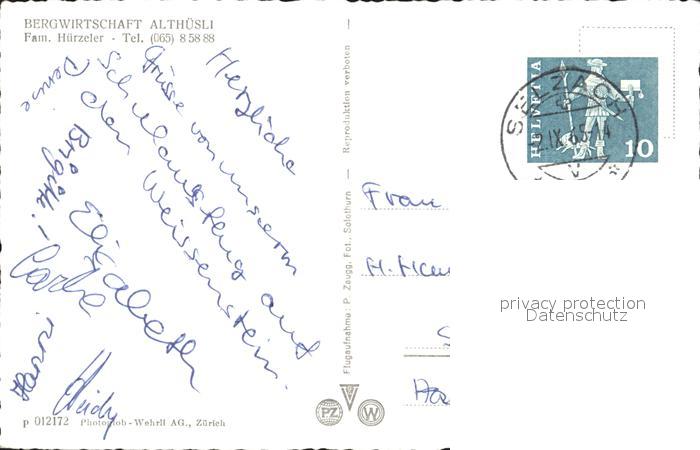 BERGWIRTSCHAFT ALTHÜSLI
Fam. Hürzeler - Tel. (065) 8 58 88
Herzliche
Grüsse von unserem
Schulausflug auf
den Weissenstein.
Denise
Brigitte
Elisabeth
Heidy
p 012172 Photoglob-Wehrli AG., Zürich
Flugaufnahme: P. Zaugg, Fot., Solothurn — Reproduktion verboten
PZ
W
HELVETIA
10
SELZACH
IX 65-14
Frau
privacy protection
Datenschutz